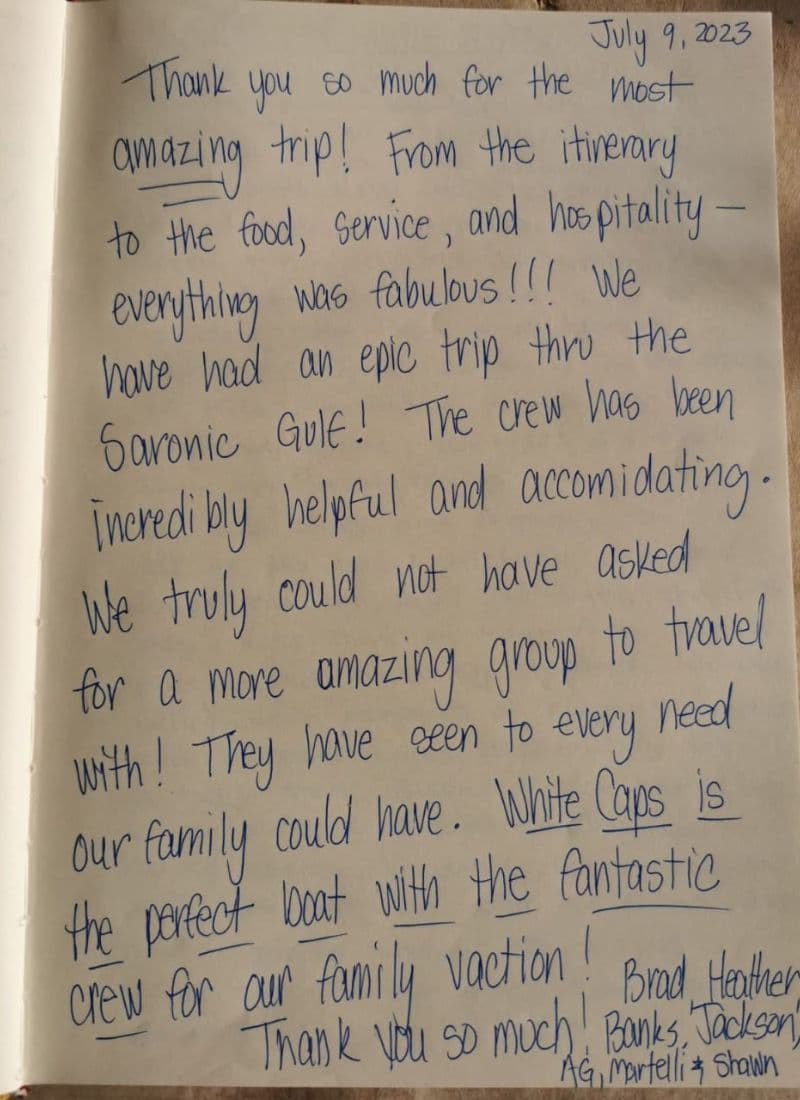 July 9, 2023
Thank you so much for the most
amazing trip! From the itinerary
to the food, service, and hospitality –
everything was fabulous!!! We
have had an epic trip thru the
Saronic Gulf! The crew has been
incredibly helpful and accomidating.
We truly could not have asked
for a more amazing group to travel
with! They have seen to every need
our family could have. White Caps is
the perfect boat with the fantastic
crew for our family vaction!
Thank you so much!
Brad, Heather
Banks, Jackson,
AG, Martelli & Shawn